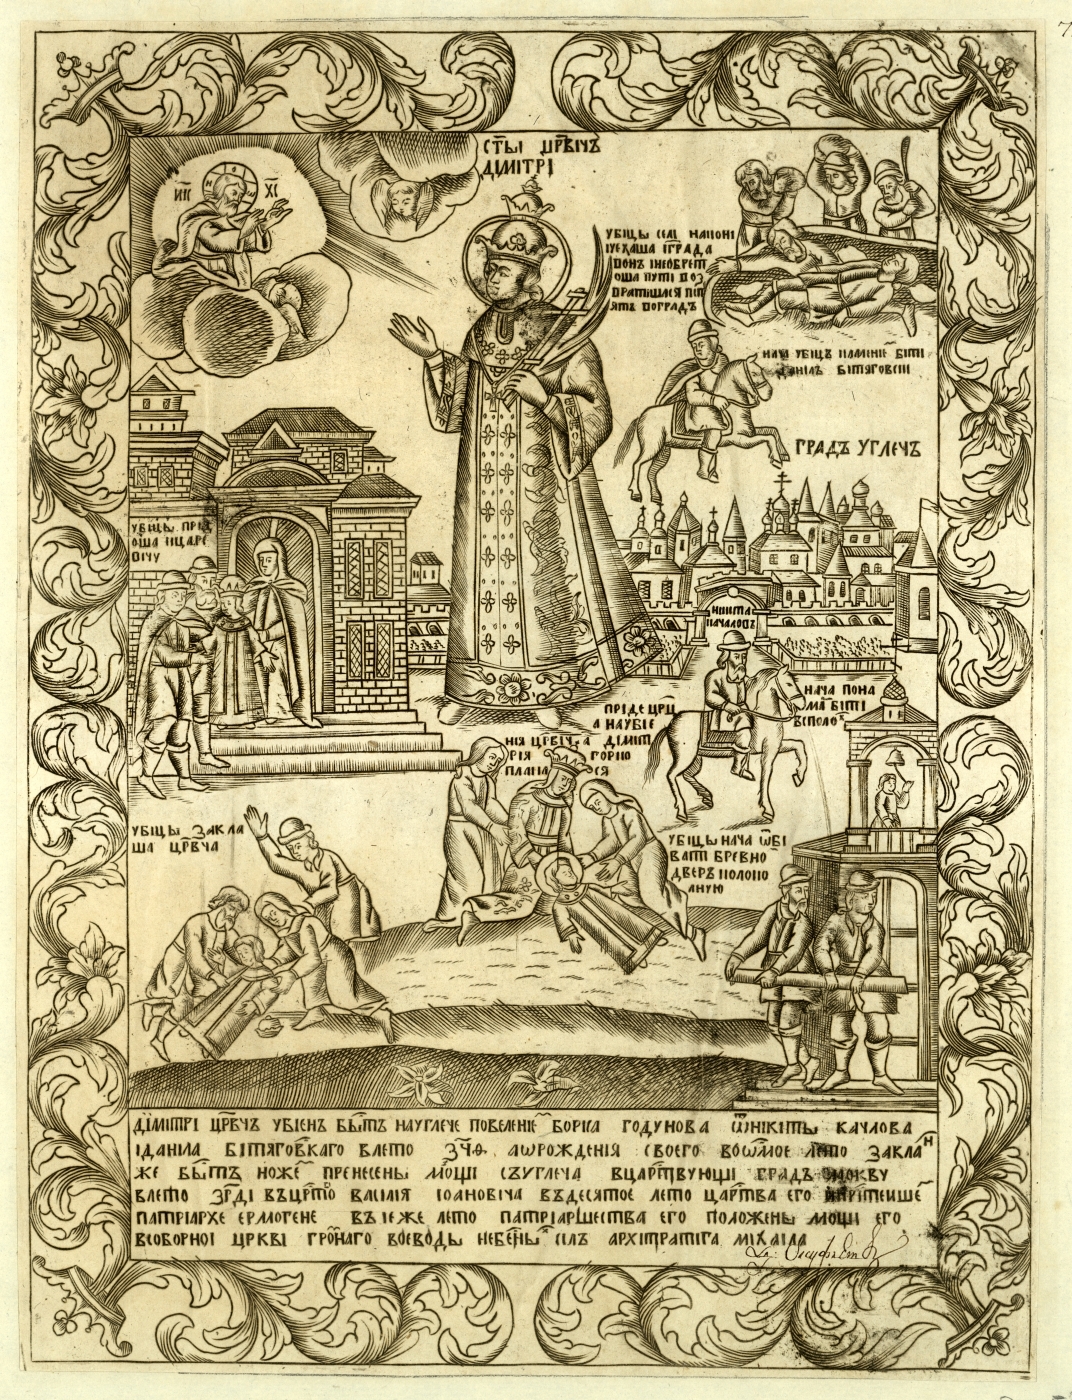 ІИС ХС
СТЫ ЦРВИЧЪ
ДІМИТРІ
УБІЦЫ СЕЛІ НАКОНІ
ІУЕХАША ІГРАДА
ВОНЪ ІНЕОБРЕТ
ОША ПУТІ ВОЗ
ВРАТІШАСЯ
ВОГРАДЪ
НАЧА УБІЦЪ КАМЕНІЕ БІТИ
ДАНІЛЪ БІТЯГОВСКІ
ГРАДЪ УГЛЕЧЪ
УБІЦЫ ПРІД
ОША КЦАРЕ
ВІЧУ
НІКІТА
КАЧАЛОВЪ
НАЧА ПОНА
МА БІТІ
ВСПОЛО
ПРІДЕ ЦРЦ
А НАУБІЕ
НІЯ ЦРВІЧА ДІМІТ
РІЯ ГОРКО
ПЛАКАСЯ
УБІЦЫ ЗАКЛА
ША ЦРВЧА
УБІЦЫ НАЧА ѾБІ
ВАТІ БРЕВНО
ДВЕРЪ КОЛОКО
ЛНУЮ
ДІМІТРІ ЦРВЧЪ УБІЕНЪ БЫТЪ НАУГЛЕЧЕ ПОВЕЛЕНІЕ БОРІСА ГОДУНОВА ѾНІКІТЫ КАЧЛОВА
ІДАНІЛА БІТЯГОВКАГО ВЛЕТО ЗЧѲ АѠРОЖДЕНІЯ СВОЕГО ВОѠМОЕ ЛЕТО ЗАКЛАН
ЖЕ БЫТЪ НОЖЕ ПРЕНЕСЕНЫ МОЩІ СЪУГЛЕЧА ВЦАРТВУЮЩІ ГРАДЪ МОКВУ
ВЛЕТО ЗРДІ ВЪЦРТВО ВАСІЛІЯ ІОАНОВІЧА ВЪДЕСЯТОЕ ЛЕТО ЦАРТВА ЕГО
ПАТРІАРХЕ ЕРМОГЕНЕ ВЪІЕЖЕ ЛЕТО ПАТРІАРШЕСТВА ЕГО ПОЛОЖЕНЫ МОЩИ ЕГО
ВСОБОРНОІ ЦРКВІ ГРОНАГО ВОЕВОДЫ НЕБЕНЫ СІЛЪ АРХІТРАТІГА МІХАІЛА